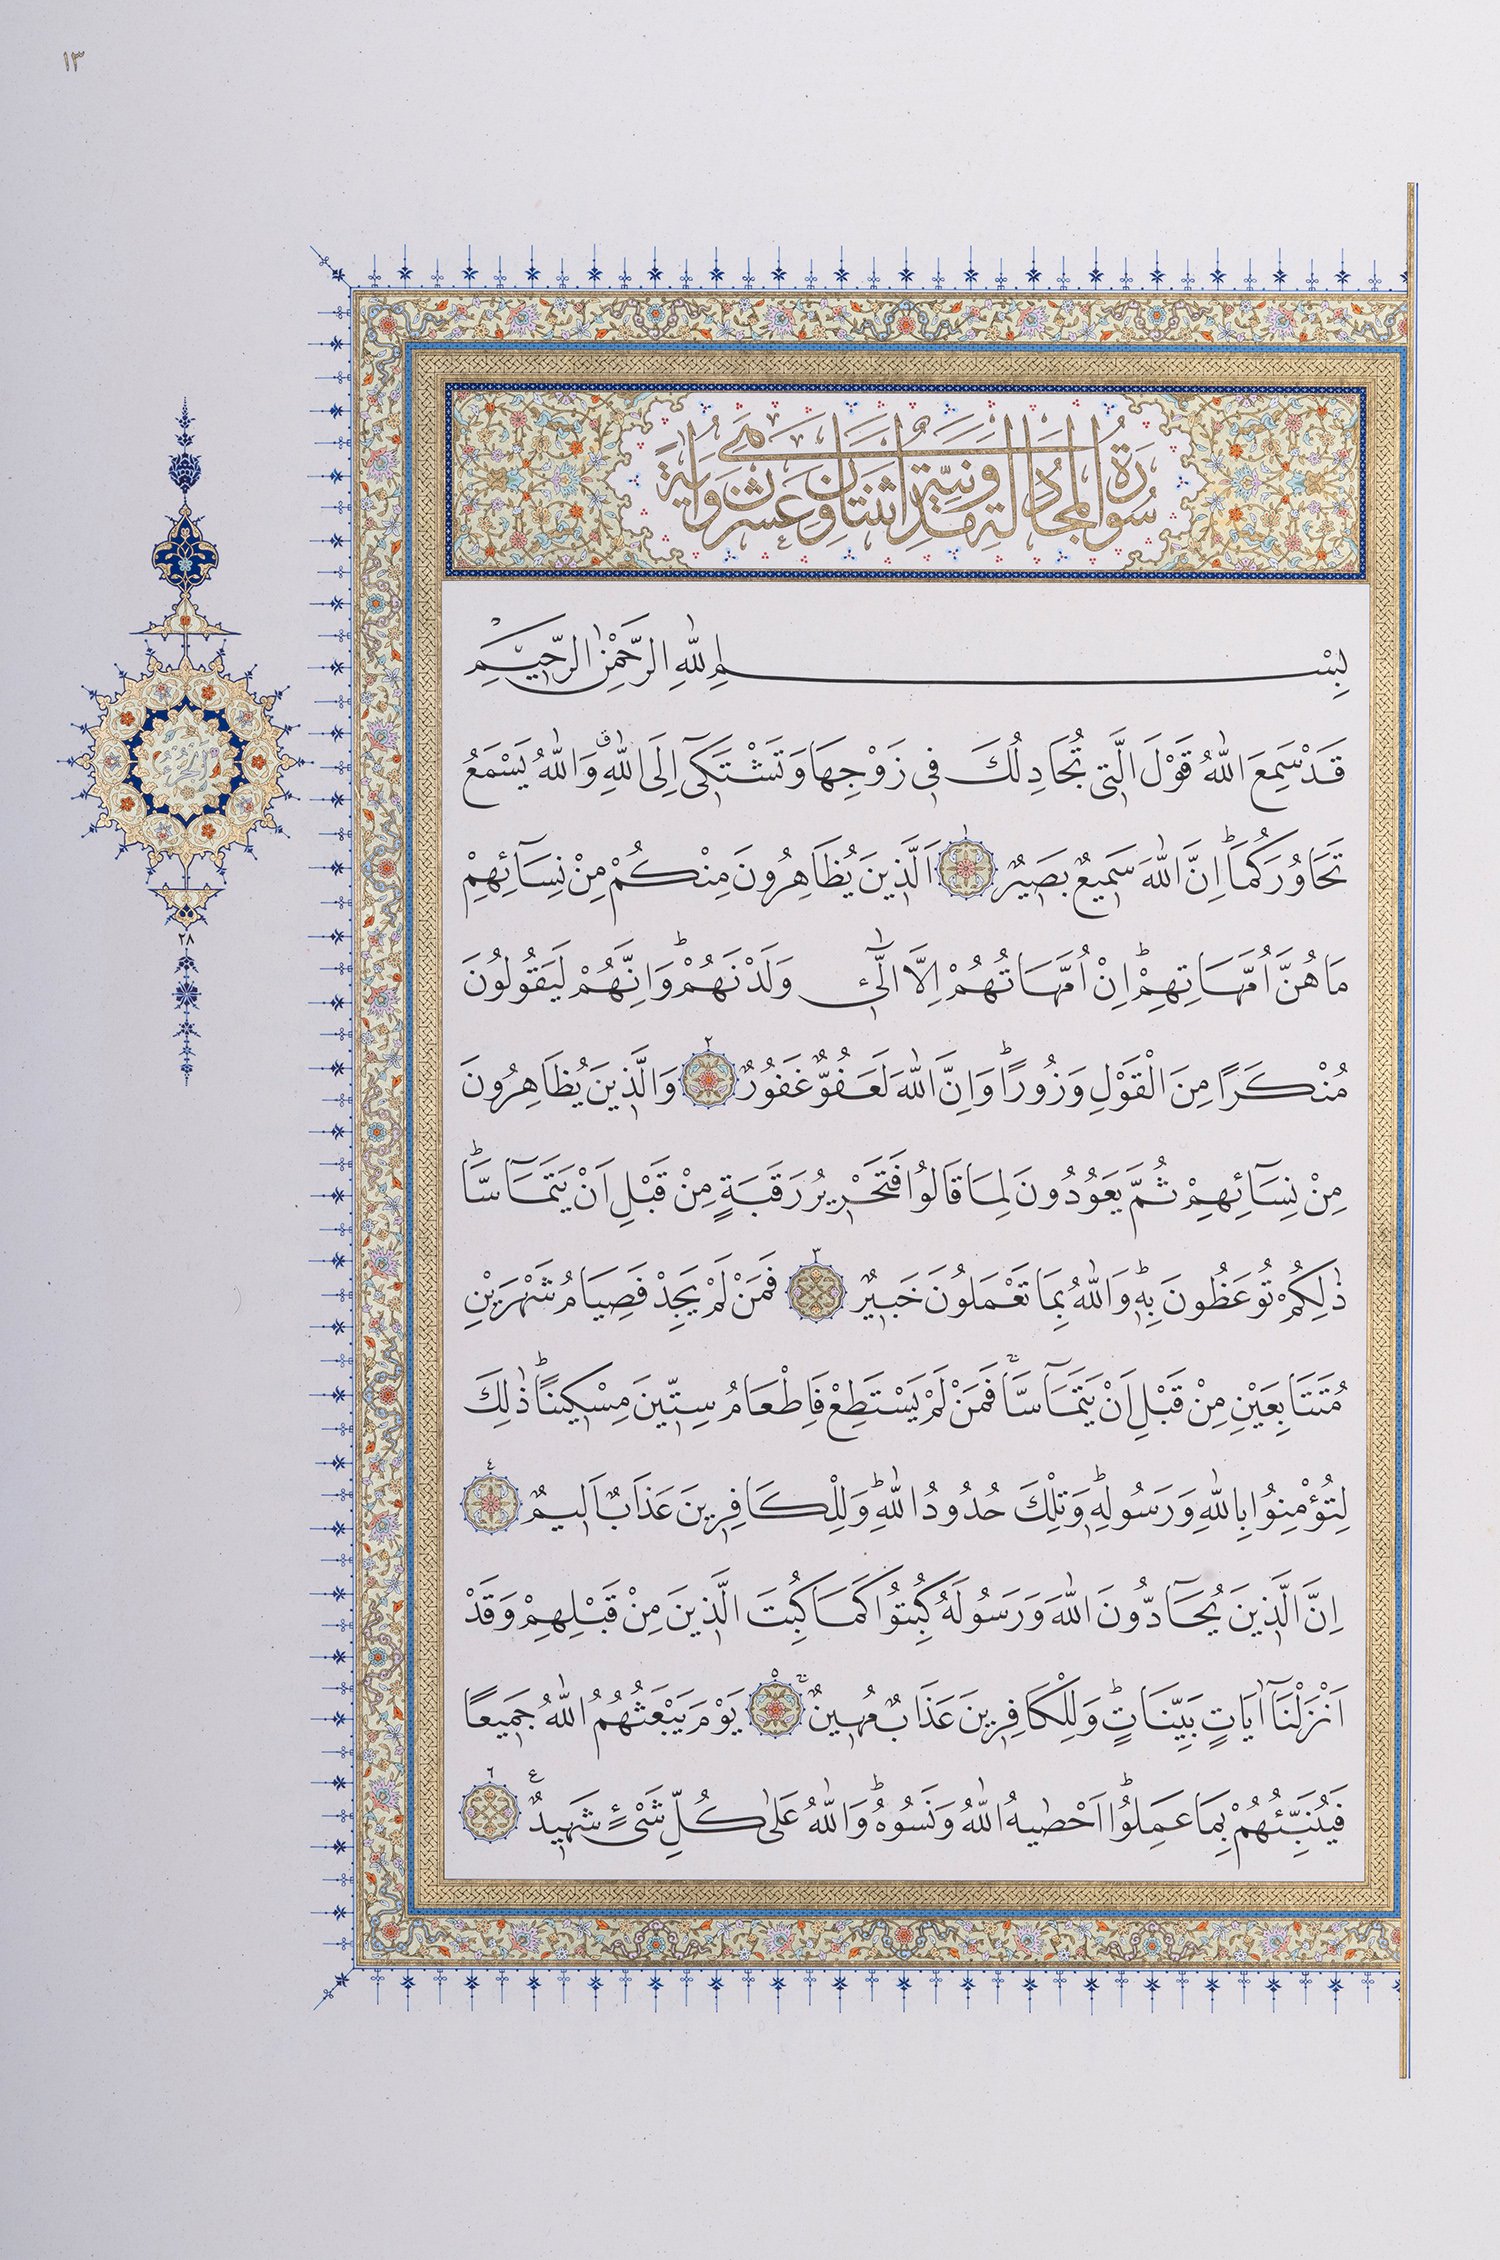 ١٣
سُورَةُ الْمُجَادَلَةِ مَدَنِيَّةٌ وَهِيَ اثْنَتَانِ وَعِشْرُونَ اٰيَةً
بِسْمِ اللّٰهِ الرَّحْمٰنِ الرَّحِيمِ
قَدْ سَمِعَ اللّٰهُ قَوْلَ الَّتِي تُجَادِلُكَ فِي زَوْجِهَا وَتَشْتَكِي اِلَى اللّٰهِۗ وَاللّٰهُ يَسْمَعُ
تَحَاوُرَكُمَاۜ اِنَّ اللّٰهَ سَمِيعٌ بَصِيرٌ ١ اَلَّذِينَ يُظَاهِرُونَ مِنْكُمْ مِنْ نِسَٓائِهِمْ
مَا هُنَّ اُمَّهَاتِهِمْۜ اِنْ اُمَّهَاتُهُمْ اِلَّا الّٰٓـِٔي وَلَدْنَهُمْۜ وَاِنَّهُمْ لَيَقُولُونَ
مُنْكَرًا مِنَ الْقَوْلِ وَزُورًاۜ وَاِنَّ اللّٰهَ لَعَفُوٌّ غَفُورٌ ٢ وَالَّذِينَ يُظَاهِرُونَ
مِنْ نِسَٓائِهِمْ ثُمَّ يَعُودُونَ لِمَا قَالُوا فَتَحْرِيرُ رَقَبَةٍ مِنْ قَبْلِ اَنْ يَتَمَٓاسَّاۜ
ذٰلِكُمْ تُوعَظُونَ بِهِۜ وَاللّٰهُ بِمَا تَعْمَلُونَ خَبِيرٌ ٣ فَمَنْ لَمْ يَجِدْ فَصِيَامُ شَهْرَيْنِ
مُتَتَابِعَيْنِ مِنْ قَبْلِ اَنْ يَتَمَٓاسَّاۚ فَمَنْ لَمْ يَسْتَطِعْ فَاِطْعَامُ سِتِّينَ مِسْكِينًاۜ ذٰلِكَ
لِتُؤْمِنُوا بِاللّٰهِ وَرَسُولِهِۜ وَتِلْكَ حُدُودُ اللّٰهِۜ وَلِلْكَافِرِينَ عَذَابٌ اَلِيمٌ ٤
اِنَّ الَّذِينَ يُحَٓادُّونَ اللّٰهَ وَرَسُولَهُ كُبِتُوا كَمَا كُبِتَ الَّذِينَ مِنْ قَبْلِهِمْ وَقَدْ
اَنْزَلْنَٓا اٰيَاتٍ بَيِّنَاتٍۜ وَلِلْكَافِرِينَ عَذَابٌ مُهِينٌۚ ٥ يَوْمَ يَبْعَثُهُمُ اللّٰهُ جَمِيعًا
فَيُنَبِّئُهُمْ بِمَا عَمِلُواۜ اَحْصٰيهُ اللّٰهُ وَنَسُوهُۜ وَاللّٰهُ عَلٰى كُلِّ شَيْءٍ شَهِيدٌ۟ ٦
٢٨